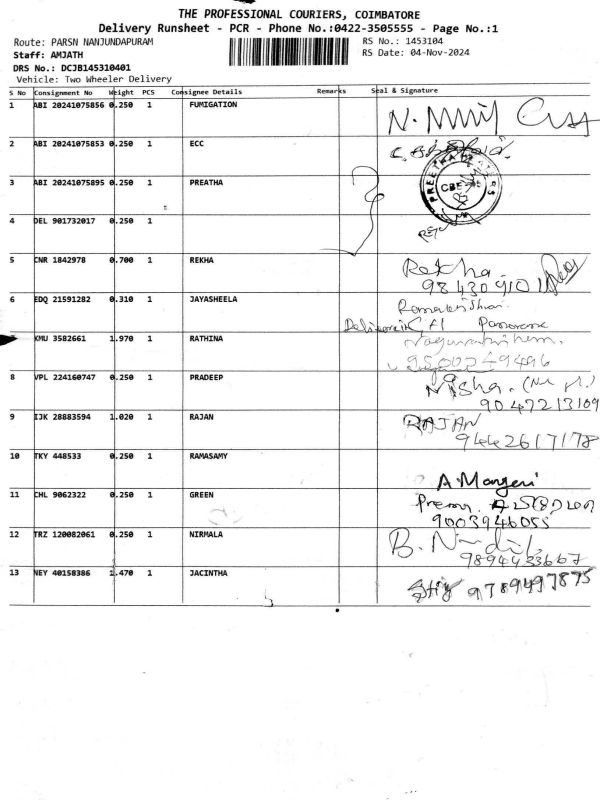 THE PROFESSIONAL COURIERS, COIMBATORE
Delivery Runsheet - PCR - Phone No.:0422-3505555 - Page No.:1
Route: PARSN NANJUNDAPURAM
RS No.: 1453104
Staff: AMJATH
RS Date: 04-Nov-2024
DRS No.: DCJB145310401
Vehicle: Two Wheeler Delivery
S No Consignment No Weight PCS Consignee Details Remarks Seal & Signature
1 ABI 20241075856 0.250 1 FUMIGATION
2 ABI 20241075853 0.250 1 ECC
3 ABI 20241075895 0.250 1 PREATHA
CBE
4 DEL 901732017 0.250 1
5 CNR 1842978 0.700 1 REKHA Rekha
98430 9101
6 EDQ 21591282 0.310 1 JAYASHEELA
KMU 3582661 1.970 1 RATHINA
9500249496
8 VPL 224160747 0.250 1 PRADEEP Nisha.
9047213109
9 IJK 28883594 1.020 1 RAJAN RAJAN
9442617178
10 TKY 448533 0.250 1 RAMASAMY
11 CHL 9062322 0.250 1 GREEN
9003946055
12 TRZ 120082061 0.250 1 NIRMALA
9894433667
13 NEY 40158386 1.470 1 JACINTHA 9789497875